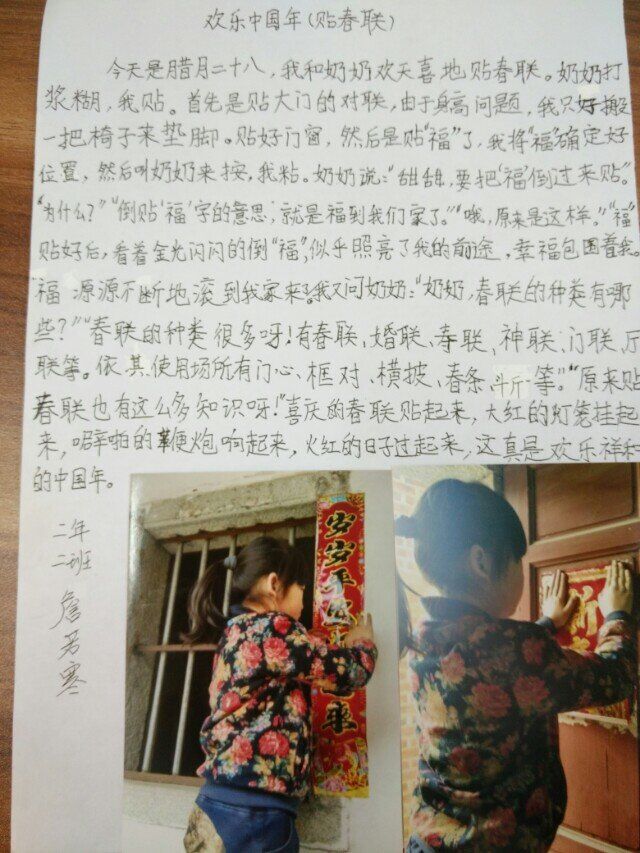 欢乐中国年(贴春联)
今天是腊月二十八,我和奶奶欢天喜地贴春联。奶奶打
浆糊,我贴。首先是贴大门的对联,由于身高问题,我只好搬
一把椅子来垫脚。贴好门窗,然后是贴“福”了,我将“福”确定好
位置,然后叫奶奶来按,我粘。奶奶说:“甜甜,要把‘福’倒过来贴”。
“为什么?”“倒贴‘福’字的意思,就是福到我们家了。”“哦,原来是这样。”“福”
贴好后,看着金光闪闪的倒“福”,似乎照亮了我的前途,幸福包围着我。
“福”源源不断地滚到我家来了。我又问奶奶:“奶奶,春联的种类有哪
些?”“春联的种类很多呀!有春联、婚联、寿联、神联、门联、厅
联等。依其使用场所有门心、框对、横披、春条、斗斤等。”“原来贴
春联也有这么多知识呀!”喜庆的春联贴起来,大红的灯笼挂起
来,噼啪的鞭炮响起来,火红的日子过起来,这真是欢乐祥和
的中国年。
二年
二班
詹芳零
岁岁平
来